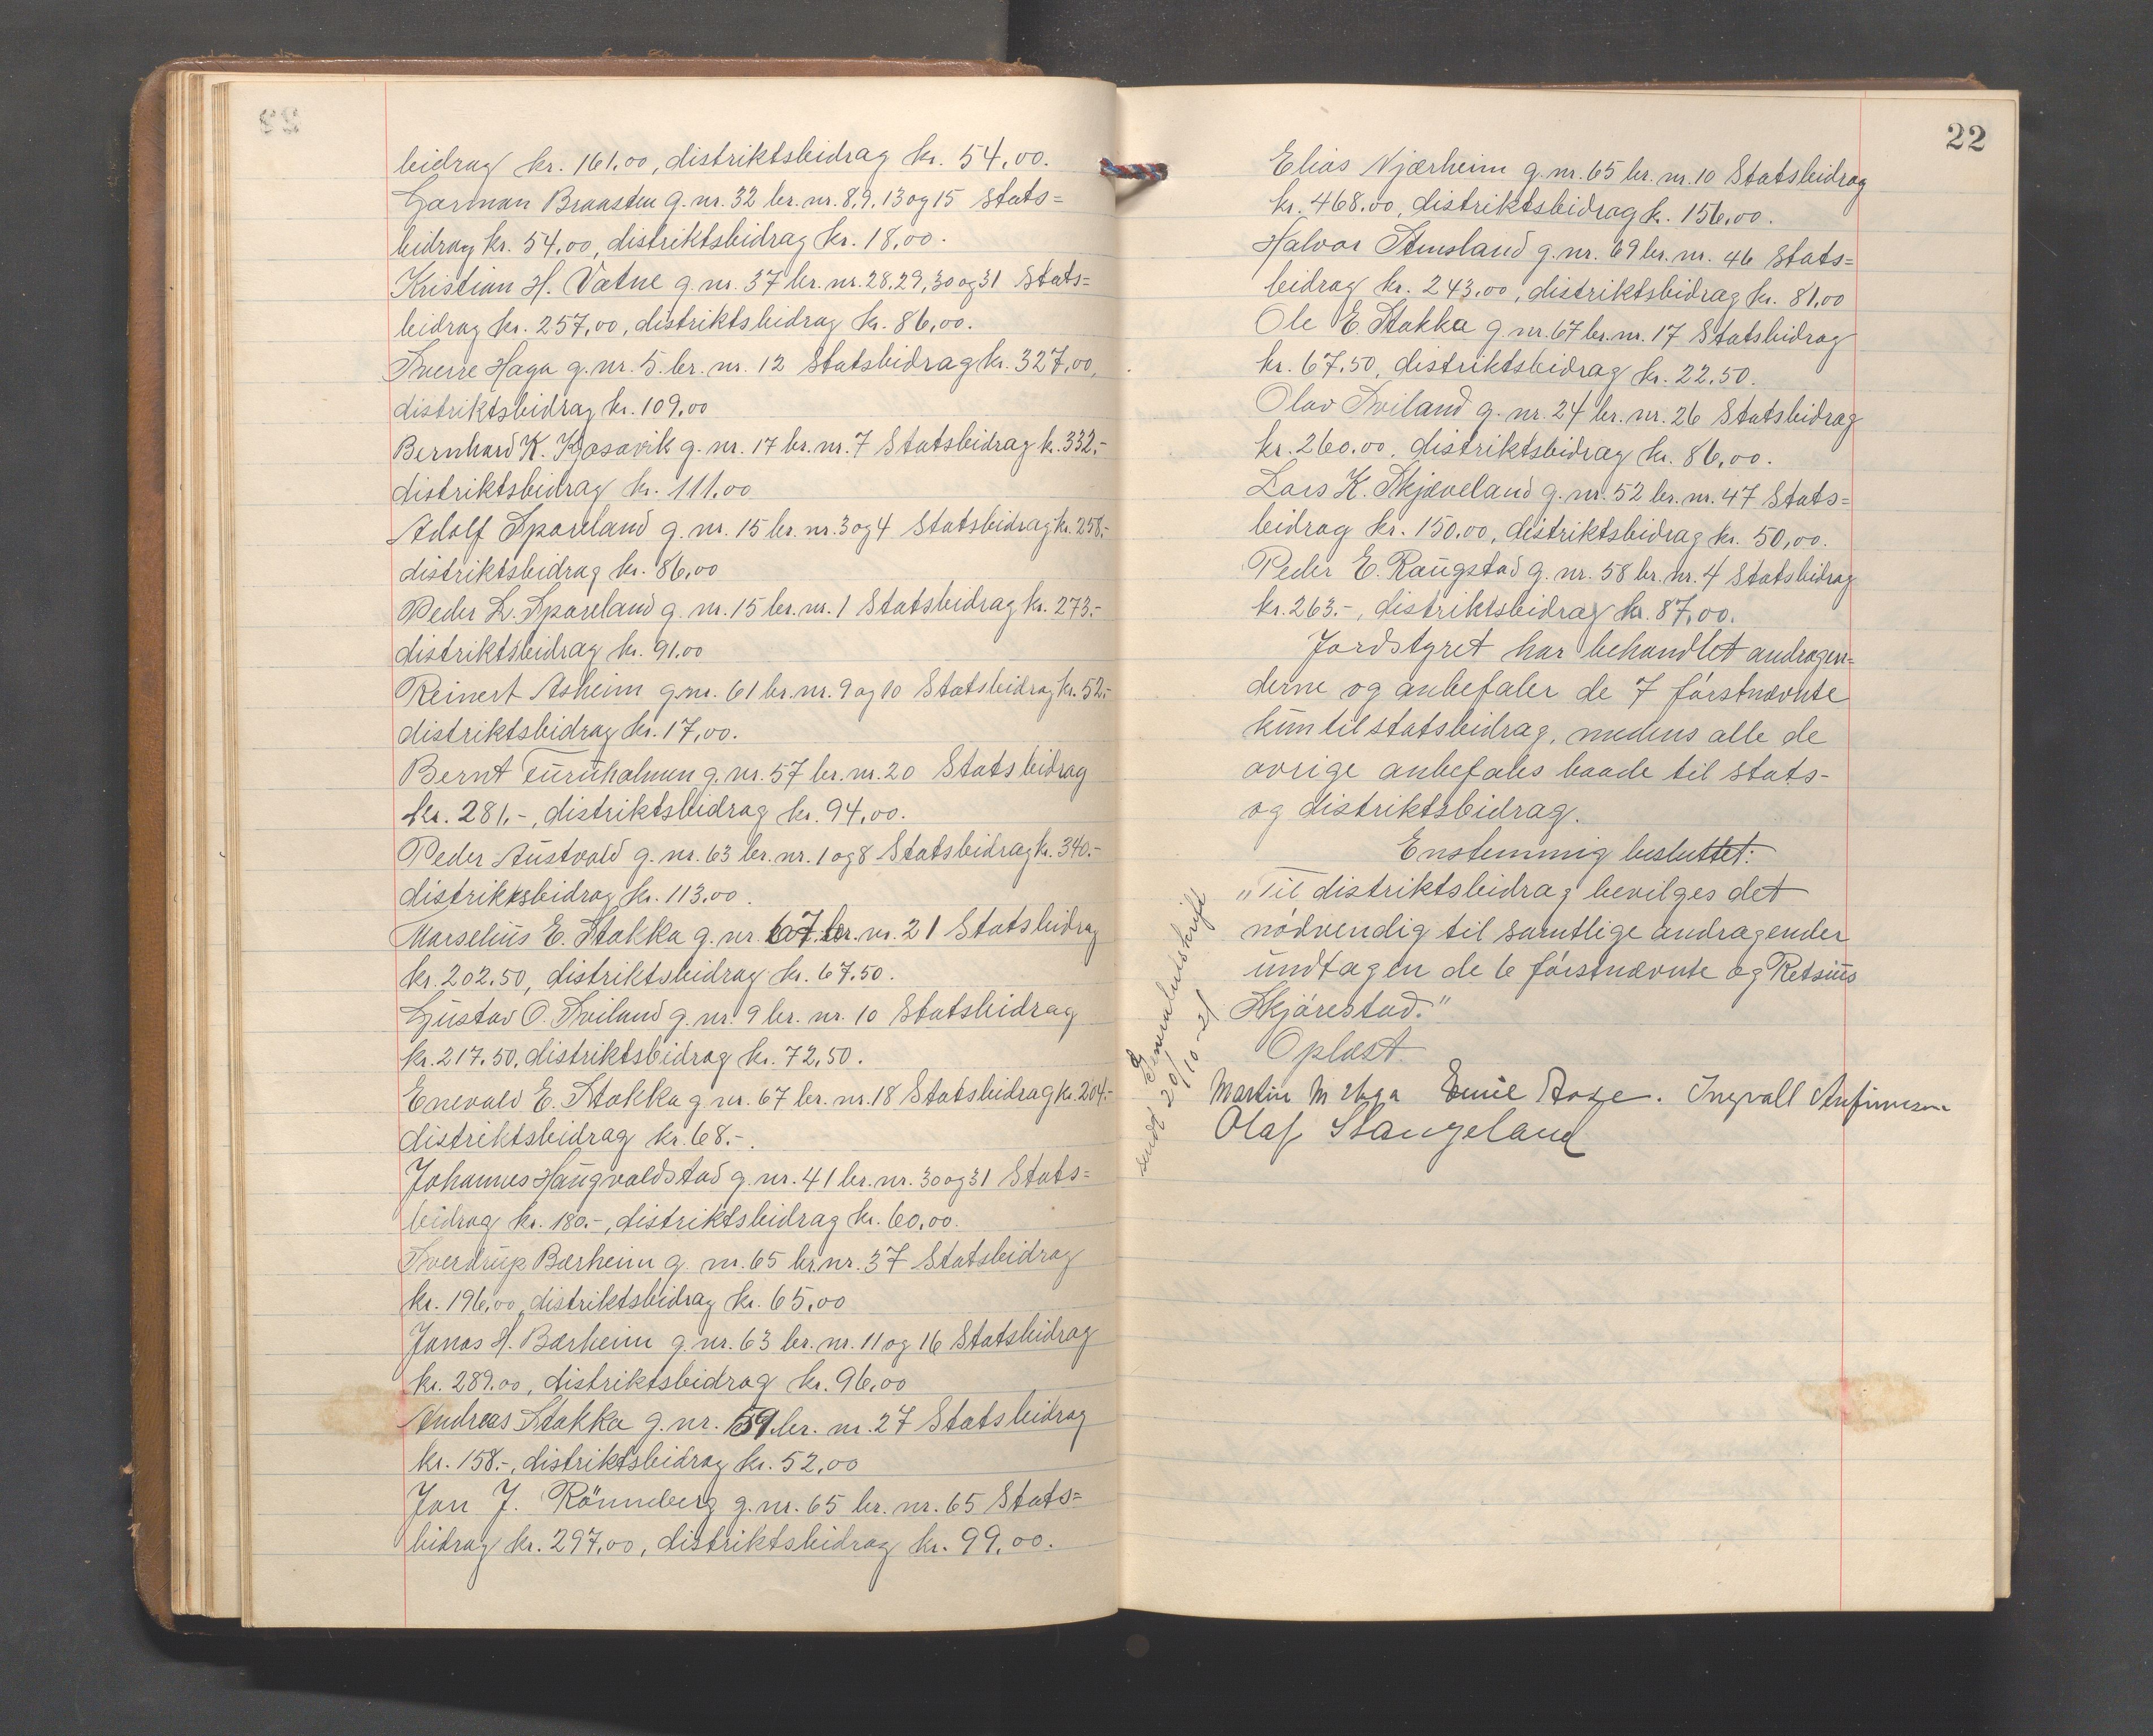 bidrag kr. 161.00, distriktsbidrag kr. 54.00.
Garman Braasten g. nr. 32 br. nr. 8, 9, 13 og 15 Stats=
bidrag kr. 54.00, distriktsbidrag kr. 18.00.
Kristian H. Vatne g. nr. 37 br. nr. 28, 29, 30 og 31 Stats=
bidrag kr. 257,00, distriktsbidrag kr. 86,00.
Sverre Haga g. nr. 5. br. nr. 12 Statsbidrag kr. 327,00,
distriktsbidrag kr. 109.00
Bernhard K. g. nr. 17 br. nr. 7 Statsbidrag k. 332.-
distriktsbidrag kr. 111.00
Adolf Spaneland g. nr. 15 br. nr. 3 og 4 Statsbidrag kr. 258.-
distriktsbidrag kr. 86,00
Peder L. Spaneland g. nr. 15 br. nr. 1 Statsbidrag kr. 273.-
distriktsbidrag kr. 91.00
Reinert Asheim g. nr. 61 br. nr. 9 og 10 Statsbidrag kr. 52.-
distriktsbidrag kr. 17,00.
Bernt Turuholmen g. nr. 57 br. nr. 20 Statsbidrag
kr. 281.-, distriktsbidrag kr. 94,00.
Peder Austvold g. nr. 63 br. nr. 1 og 8 Statsbidrag kr. 340.-
distriktsbidrag kr. 113.00.
Marselius E. Stokka g. nr. 67 br. nr. 21 Statsbidrag
kr. 202.50, distriktsbidrag kr. 67.50.
Gustav O. Sviland g. nr. 9 br. nr. 10 Statsbidrag
kr. 217.50, distriktsbidrag kr. 72,50.
Enevald E. Stokka g nr. 67 br. nr. 18 Statsbidrag kr. 204.-
distriktsbidrag kr. 68.-.
Johannes Haugvaldstad g. nr. 41 br. nr. 30 og 31 Stats=
bidrag kr. 180.-, distriktsbidrag kr. 60,00.
Sverdrup Bærheim g. nr. 65 br nr. 37 Statsbidrag
kr. 196,00, distriktsbidrag kr. 65,00
Jonas H. Bærheim g. nr. 63 br. nr. 11 og 16 Statsbidrag
kr. 289.00, distriktsbidrag kr. 96,00
Andreas Stokka g. nr. 59. br. nr. 27 Statsbidrag
kr. 158.-, distriktsbidrag kr. 52,00
Jon J. Rönneberg g. nr. 65 br. nr. 65 Stats=
bidrag kr. 297,00, distriktsbidrag kr. 99,00.
22
Elias Njærheim g. nr. 65 br. nr. 10 Statsbidrag
kr. 468.00, distriktsbidrag k. 156,00.
Halvor Stensland g. nr. 69 br. nr. 46 Stats=
bidrag kr. 243.00, distriktsbidrag kr. 81,00
Ole E. Stokka g. nr. 67 br. nr. 17 Statsbidrag
kr. 67,50, distriktsbidrag kr. 22.50.
Olav Sviland g. nr. 24 br. nr. 26 Statsbidrag
kr. 260.00. distriktsbidrag kr. 86,00.
Lars K. Skjæveland g. nr. 52 br. nr. 47 Stats=
bidrag kr. 150.00, distriktsbidrag kr. 50,00.
Peder E. Raugstad g. nr. 58 br. nr. 4 Statsbidrag
kr. 263.-, distriktsbidrag kr. 87,00.
Jordstyret har behandlet andragen=
derne og anbefaler de 7 förstnævnte
kun til statsbidrag, medens alle de
øvrige anbefales baade til stats-
og distriktsbidrag.
Enstemmig besluttet:
„Til distriktsbidrag bevilges det
nödvendig til samtlige andragender
undtagen de 6 förstnævnte og Retsius
Skjörestad."
Oplæst.
sendt Generaludskrift
20/10-21
Martin M Haga Emil Aase. Ingvald Anfinnsen
Olaf Stangeland